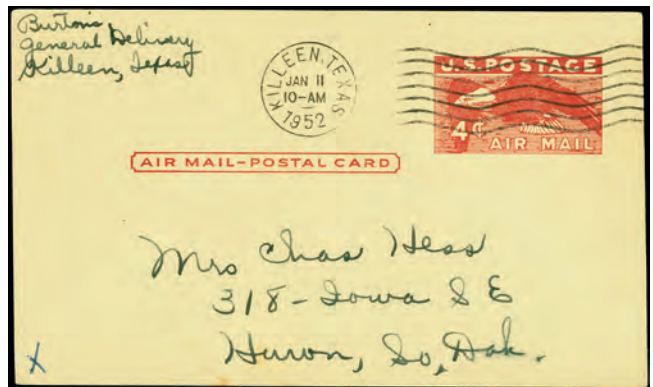 Burtons
General Delivery
Killeen, Texas
KILLEEN, TEXAS
JAN 11
10-AM
1952
U.S. POSTAGE
4¢
AIR MAIL
AIR MAIL-POSTAL CARD
Mrs Chas Hess
318-Iowa S E
Huron, So, Dak.
X